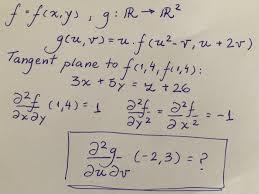 f = f(x,y) , g: ℝ → ℝ²
g(u,v) = u · f(u²-v, u+2v)
Tangent plane to f(1,4, f(1,4):
3x + 5y = z + 26
∂²f/∂x∂y (1,4) = 1   ∂²f/∂y² = ∂²f/∂x² = -1
∂²g/∂u∂v (-2,3) = ?